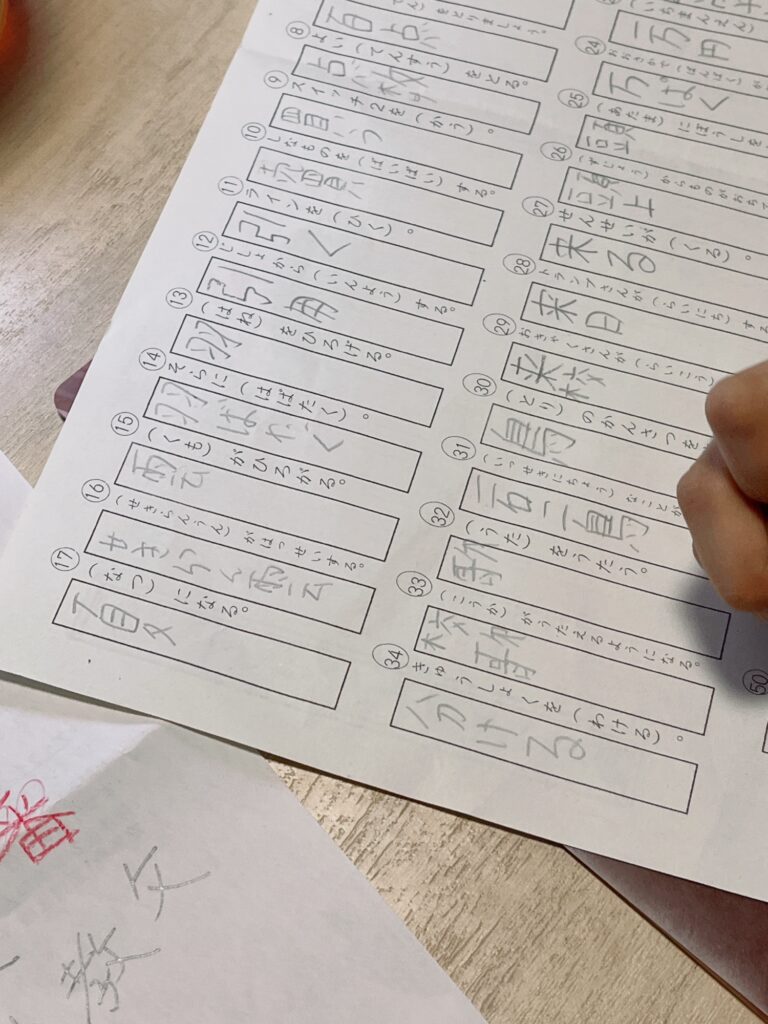 てん）をとりましょう。
百点
⑧ よい（てんすう）をとる。
点数
⑨ スイッチ2を（かう）。
買う
⑩ しなものを（ばいばい）する。
売買
⑪ ラインを（ひく）。
引く
⑫ じしょから（いんよう）する。
引用
⑬ （はね）をひろげる。
羽
⑭ そらに（はばたく）。
羽ばたく
⑮ （くも）がひろがる。
雲
⑯ （せきらんうん）がはっせいする。
せきらん雲
⑰ （なつ）になる。
夏
（いちまんえん）
一万円
㉔ おおさかで（ばんぱく）が
万ぱく
㉕ （あたま）にぼうしを
頭
㉖ （ずじょう）からものがおちて
頭上
㉗ せんせいが（くる）。
来る
㉘ トランプさんが（らいにち）する
来日
㉙ おきゃくさんが（らいこう）
来校
㉚ （とり）のかんさつを
鳥
㉛ （いっせきにちょう）なことが
一石二鳥
㉜ （うた）をうたう。
歌
㉝ （こうか）がうたえるようになる。
校歌
㉞ きゅうしょくを（わける）。
分ける
㊿